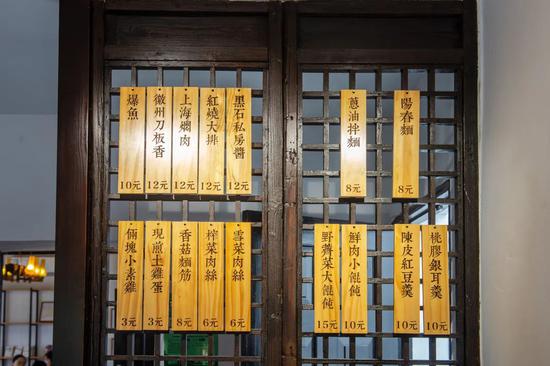 陽春麵 8元
蔥油拌麵 8元
黑石私房醬 12元
紅燒大排 12元
上海燜肉 12元
徽州刀板香 12元
爆魚 10元
桃膠銀耳羹 10元
陳皮紅豆羹 10元
鮮肉小餛飩 10元
野薺菜大餛飩 15元
雪菜肉絲 6元
榨菜肉絲 6元
香菇麵筋 8元
現煎土雞蛋 3元
倆塊小素雞 3元